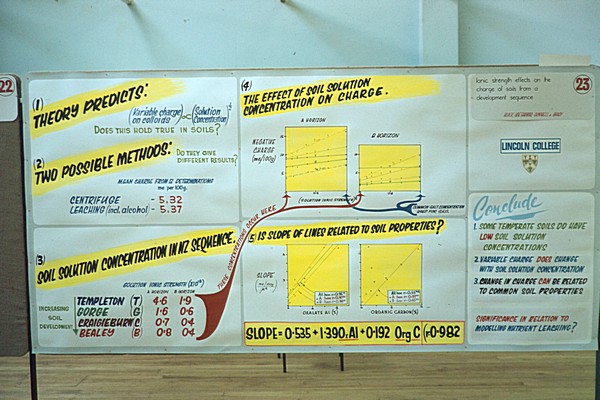 22
(1)
THEORY PREDICTS:
(Variable charge on colloids) ∝ (Solution Concentration)½
DOES THIS HOLD TRUE IN SOILS?
(2)
TWO POSSIBLE METHODS:
DO THEY GIVE
DIFFERENT RESULTS?
MEAN CHARGE FROM 12 DETERMINATIONS
me per 100g.
CENTRIFUGE - 5.32
LEACHING (incl. alcohol) - 5.37
(3)
SOIL SOLUTION CONCENTRATION IN NZ SEQUENCE.
SOLUTION IONIC STRENGTH
A HORIZON B HORIZON
INCREASING
SOIL
DEVELOPMENT
TEMPLETON (T) 4.6 1.9
GORGE (G) 1.6 0.6
CRAIGIEBURN (C) 0.7 0.4
BEALEY (B) 0.8 0.4
THESE CONCENTRATIONS OCCUR HERE
(4)
THE EFFECT OF SOIL SOLUTION
CONCENTRATION ON CHARGE.
A HORIZON
B HORIZON
NEGATIVE
CHARGE
(me/100g)
(SOLUTION IONIC STRENGTH)
COMMON SALT CONCENTRATION
5 IS SLOPE OF LINES RELATED TO SOIL PROPERTIES?
SLOPE
OXALATE Al (%)
ORGANIC CARBON (%)
SLOPE = 0.535 + 1.390 Al + 0.192 Org C (r=0.982
Ionic strength effects on the
charge of soils from a
development sequence
23
LINCOLN COLLEGE
Conclude
1. SOME TEMPERATE SOILS DO HAVE
LOW SOIL SOLUTION
CONCENTRATIONS
2. VARIABLE CHARGE DOES CHANGE
WITH SOIL SOLUTION CONCENTRATION
3. CHANGE IN CHARGE CAN BE RELATED
TO COMMON SOIL PROPERTIES
SIGNIFICANCE IN RELATION TO
MODELLING NUTRIENT LEACHING?